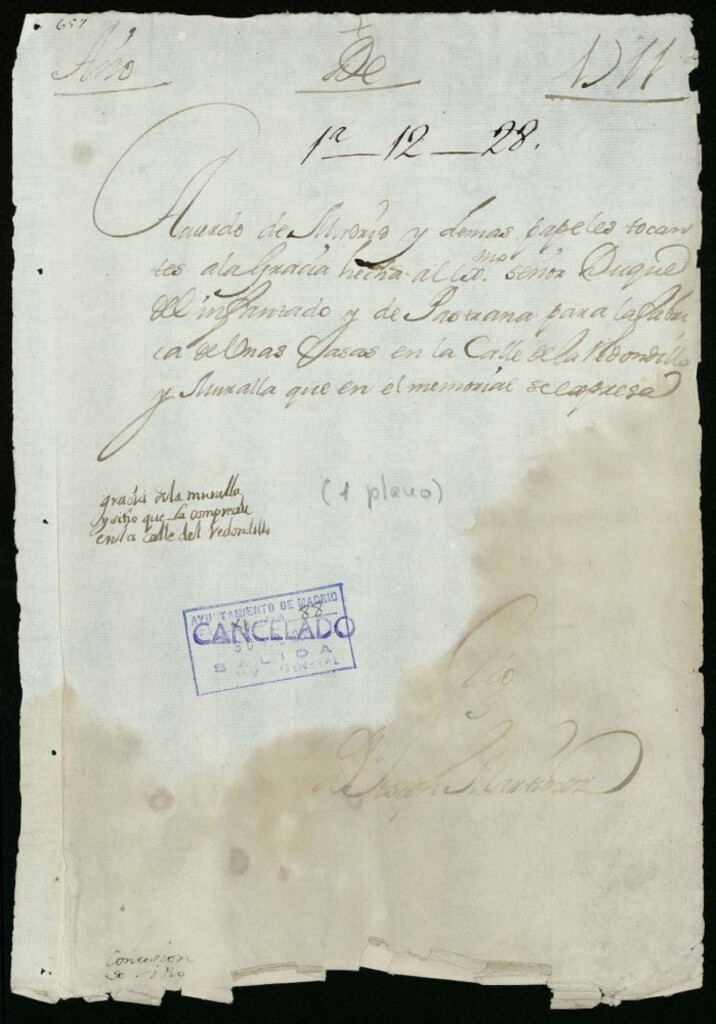 657
Año De 1711
1ª — 12 — 28.
Acuerdo de Madrid y demas papeles tocan
tes ala Gracia hecha al Exmo. señor Duque
del infantado y de Pastrana para la fabri
ca de Unas Casas en la Calle de la Redondilla
y Muralla que en el memorial se expresa
gracia dela muralla
y sitio que la comprede
en la calle del Redondillo
(1 plano)
AYUNTAMIENTO DE MADRID
88
CANCELADO
SALIDA
GENERAL
Ofiº
D. Joseph Martinez
Concesion
de sitio